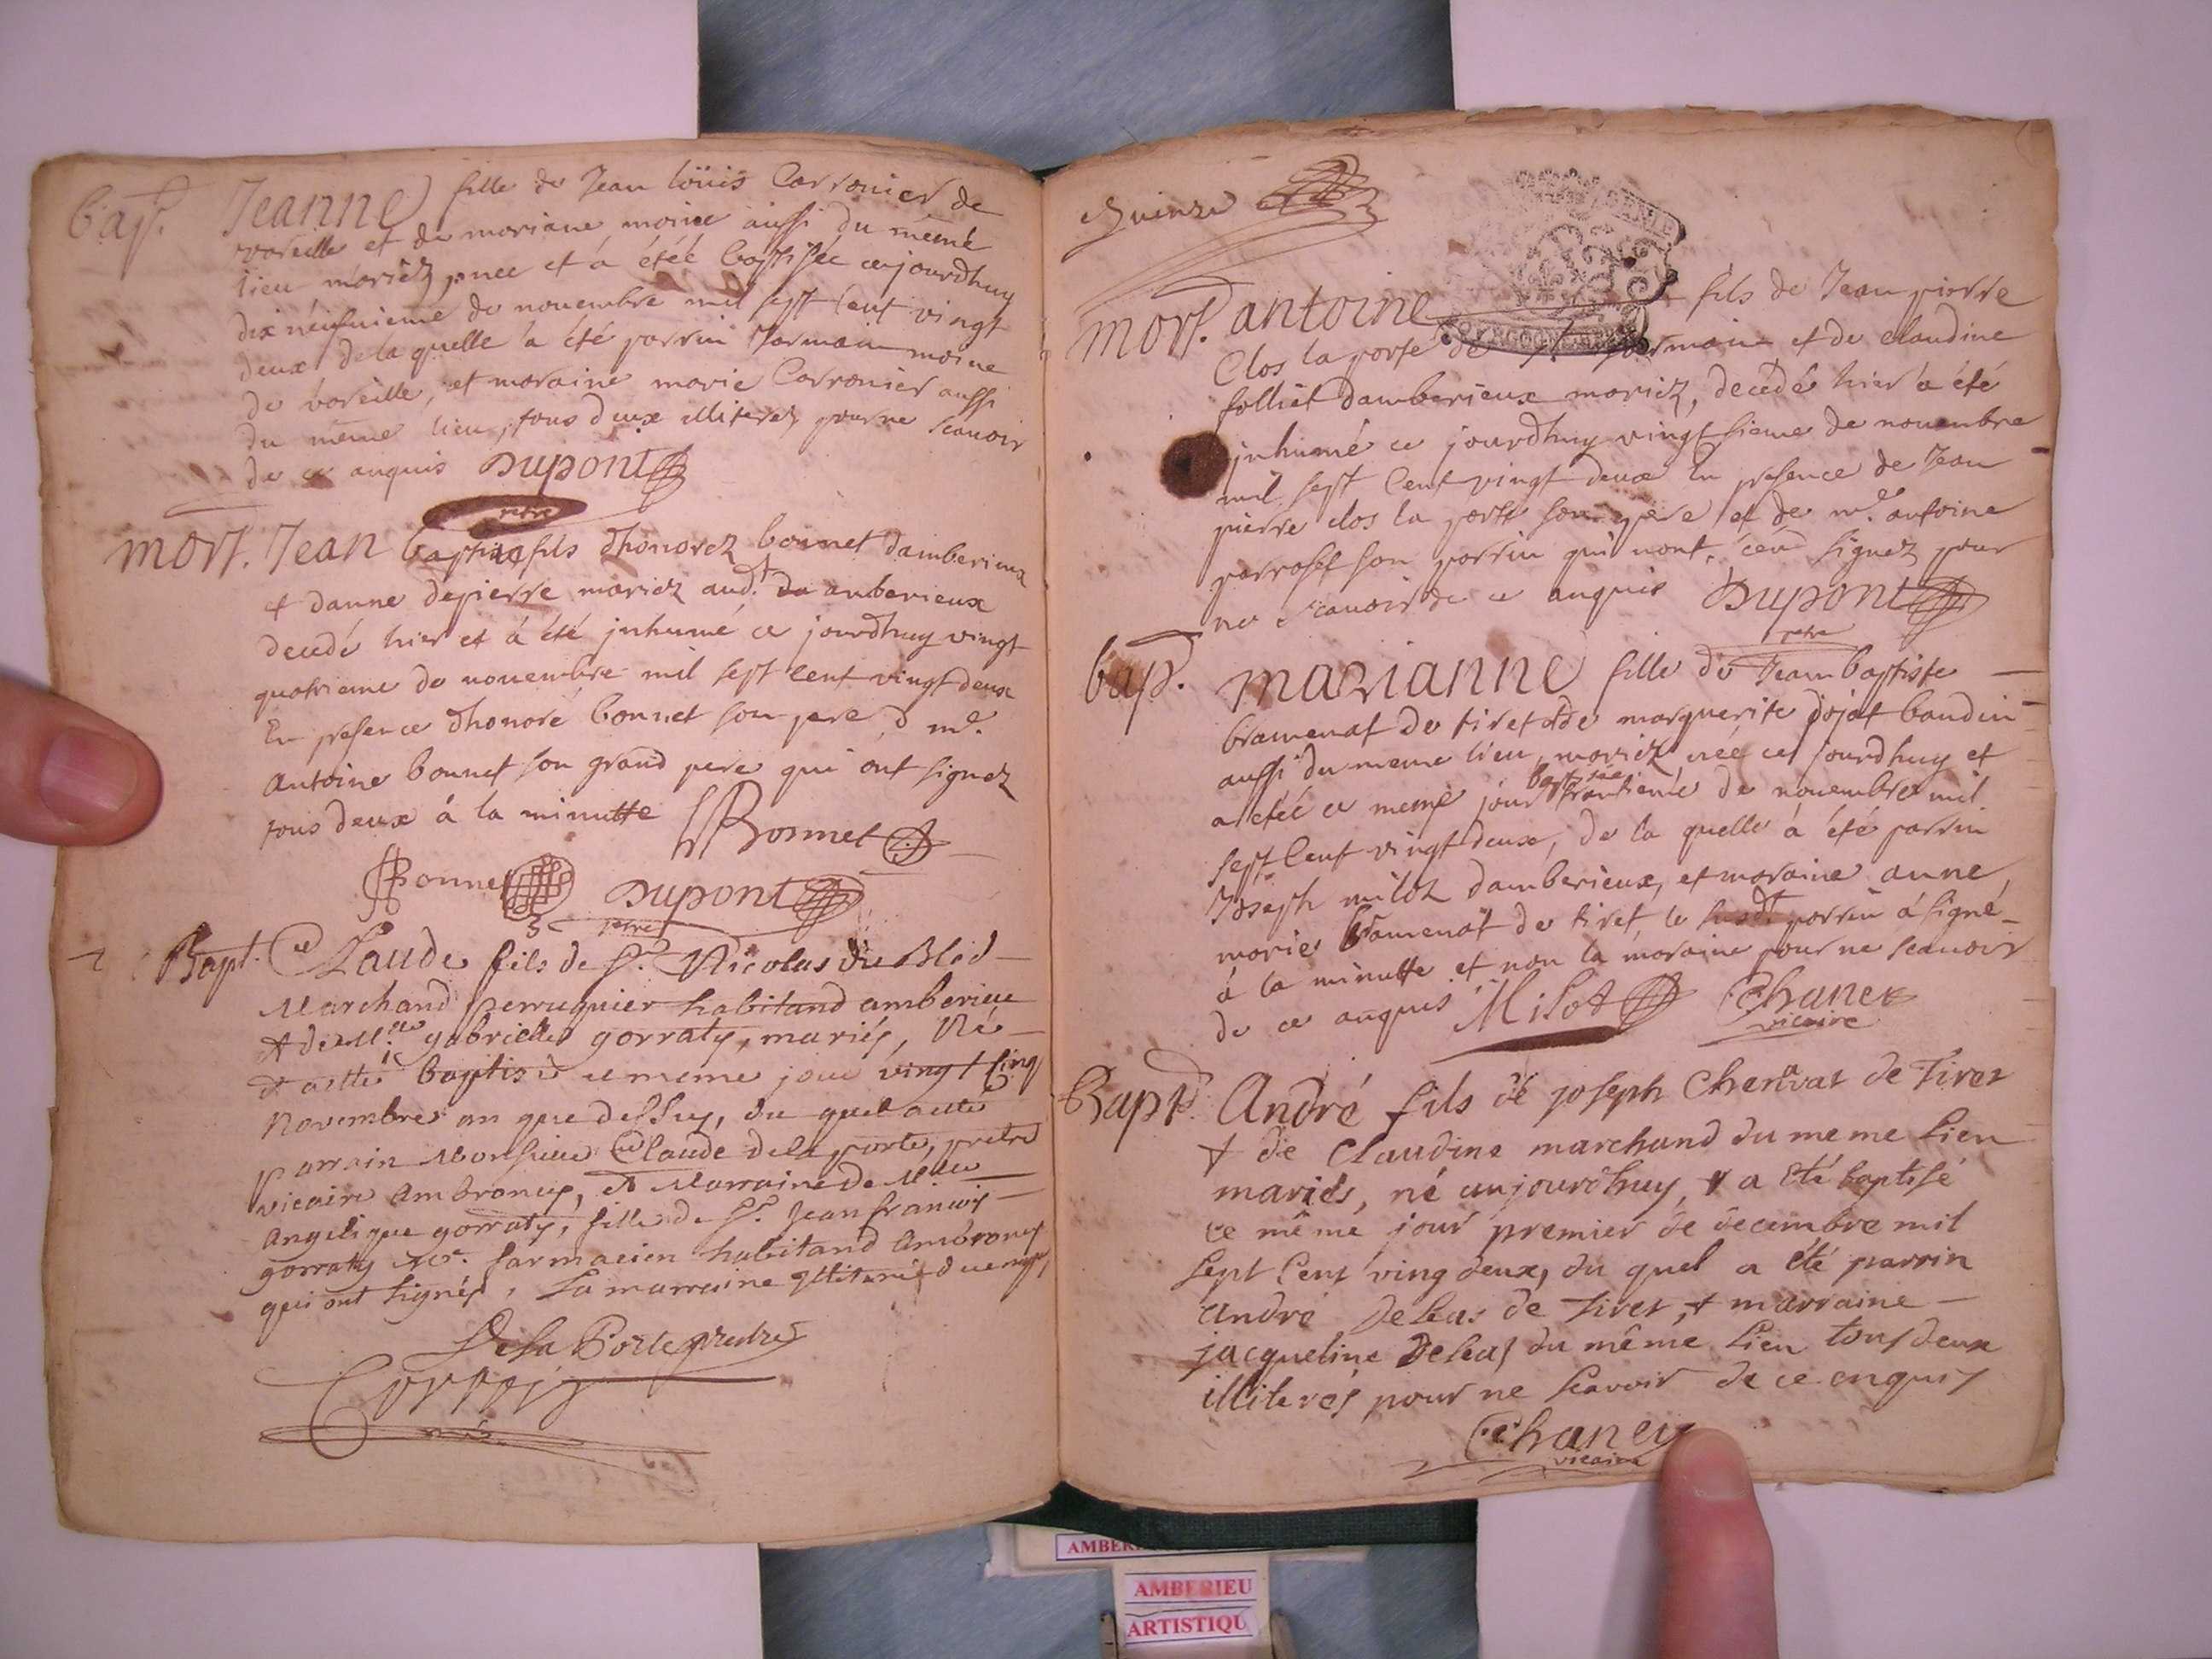 bap.
Jeanne fille de Jean loüis Carronier de
vareille et de moriane moine aussi du méme
lieu mariéz, nee et á étéé baptisée aujourdhuy
dix néufuieme de nouembre mil sept Cent vingt
deux de la quelle a été parrin Jarmain moine
de vareille, et moraine marie Carronier aussi
du méme lieu, tous deux illiterez pour ne scauoir
de ce anquis Dupont
pretre
mort. Jean baptiste fils dhonorez bonnet damberieux
et danne depierre mariez aud.t de amberieux
decedé hier et á été jnhumé ce jourdhuy vingt
quatrieme de nouembre mil sept Cent vingt deux
En presence dhonoré bonnet son pere, d m.e
Antoine bonnet son grand pere qui ont signez
tous deux á la minutte
Bonnet
Bonnet Dupont
pretre
Bapt. Claude fils de S.r Nicolas du Bled
Marchand perruquier habitand amberieu
et de M.lle gabrielle gorraty, mariés, Né
et a été baptisé ce meme jour vingt Cinq
Novembre an que dessus, du quel a été
parrain Monsieur Claude dela porte, pretre
vicaire Ambronay, et Marraine de M.lle
Angelique gorraty, fille de S.r Jean francois
gorraty M.e farmacien habitand Ambronay
qui ont signés, La marraine Illiterée d'enquis
De la Porte prestre
Quinze
mort. antoine fils de Jean pierre
Clos la porte de St germain et de claudine
folliet damberieux mariéz, decédé hier a été
jnhumé ce jourdhuy vingt sieme de nouembre
mil sept Cent vingt deux En presence de Jean
pierre clos la porte son pere et de m.e antoine
parroset son parrin qui nont, signez pour
ne scauoir de ce anquis Dupont
pretre
bap. marianne fille de Jean baptiste
bramenat de tiret et de marguerite dojat baudin
aussi du meme lieu, mariéz née ce jourdhuy et
a étéé ce meme jour baptisée trantieme de nouembre mil
sept Cent vingt deux, de la quelle á été parrin
Joseph milot damberieux, et moraine anne
marie bramenat de tiret, le susdt parrin á signé
á la minutte et non la moraine pour ne scauoir
de ce anquis Milot Chaney
vicaire
Bapt. André fils de joseph Chenavat de Tiret
et de Claudine marchand du meme Lieu
mariés, né aujourdhuy, et a été baptisé
ce même jour premier de decembre mil
sept Cent ving deux, du quel a été parrin
André Deleas de Tiret, et marraine
jacqueline Deleas du même Lieu tous deux
illiterés pour ne scavoir de ce enquis
Chaney
vicaire
AMBERIEU
ARTISTIQU